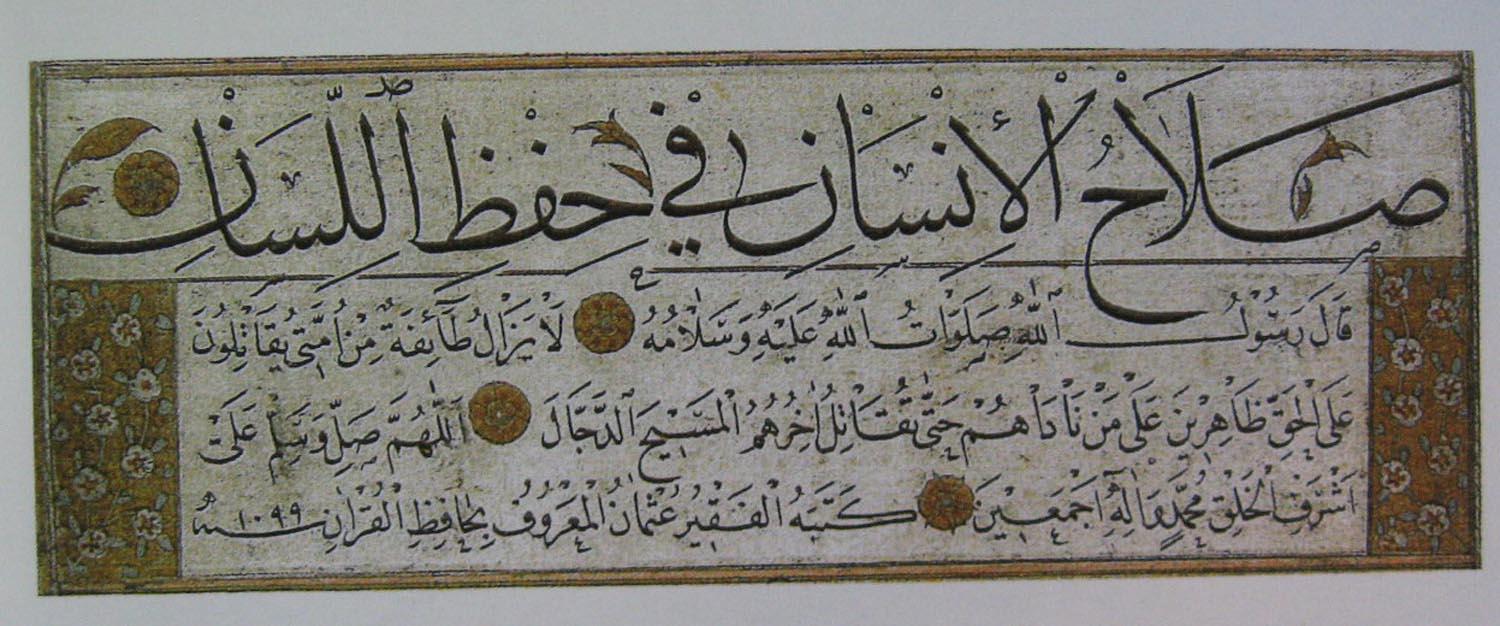 صَلَاحُ الْإِنْسَانِ فِي حِفْظِ اللِّسَانِ
قَالَ رَسُولُ اللّٰهِ صَلَوَاتُ اللّٰهِ عَلَيْهِ وَسَلَامُهُ لَا يَزَالُ طَآئِفَةٌ مِنْ اُمَّتِي يُقَاتِلُونَ
عَلَى الْحَقِّ ظَاهِرِينَ عَلَى مَنْ نَاوَاهُمْ حَتَّى يُقَاتِلَ اٰخِرُهُمُ الْمَسِيحَ الدَّجَّالَ اَللّٰهُمَّ صَلِّ وَسَلِّمْ عَلَى
اَشْرَفِ الْخَلْقِ مُحَمَّدٍ وَاٰلِهِ اَجْمَعِينَ كَتَبَهُ الْفَقِيرُ عُثْمَانُ الْمَعْرُوفُ بِحَافِظِ الْقُرْاٰنِ سنة ١٠٩٩